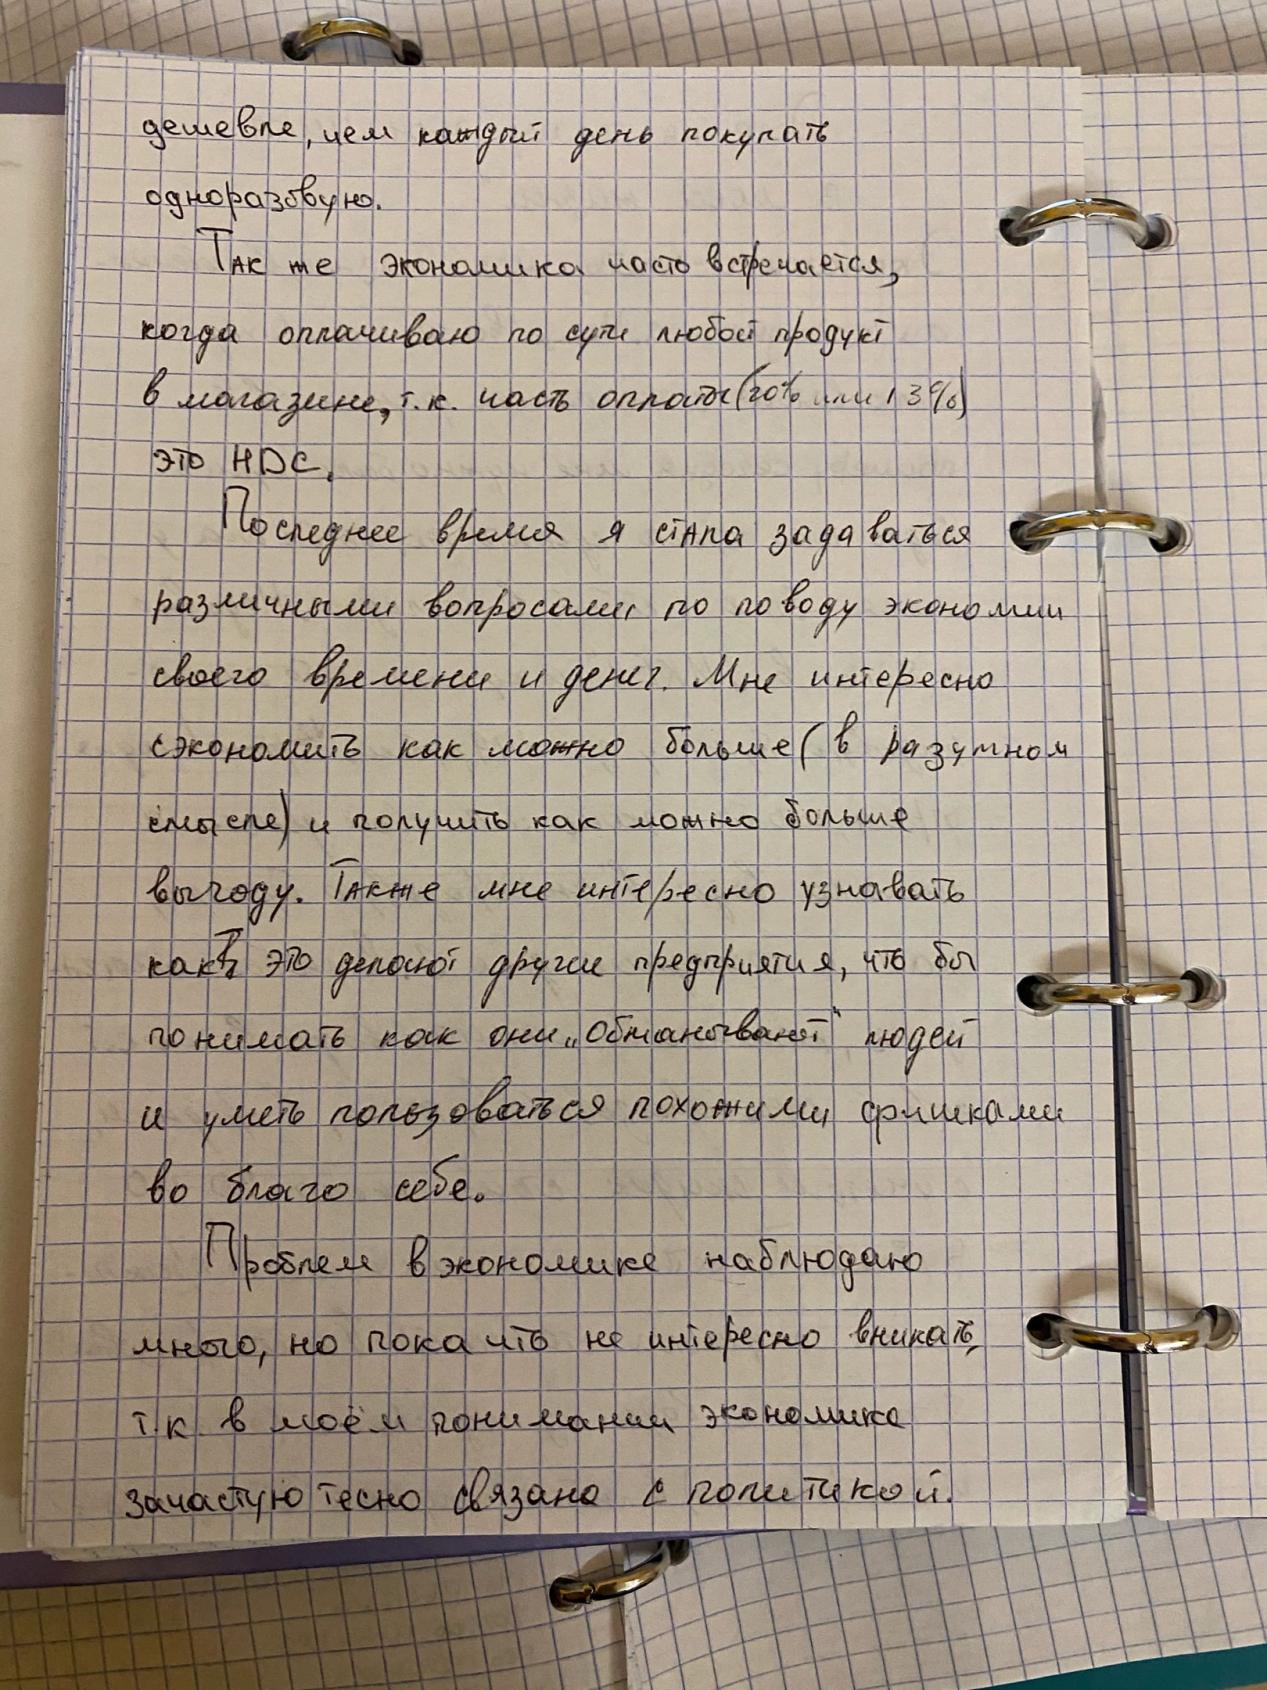 дешевле, чем каждый день покупать
одноразовую.
Так же экономика часто встречается,
когда оплачиваю по сути любой продукт
в магазине, т.к. часть оплаты (20% или 13%)
это НДС.
Последнее время я стала задаваться
различными вопросами по поводу экономии
своего времени и денег. Мне интересно
сэкономить как можно больше (в разумном
смысле) и получить как можно больше
выгоду. Также мне интересно узнавать
как это делают другие предприятия, что бы
понимать как они „обманывают“ людей
и уметь пользоваться похожими фишками
во благо себе.
Проблем в экономике наблюдаю
много, но пока что не интересно вникать,
т.к. в моём понимании экономика
зачастую тесно связана с политикой.